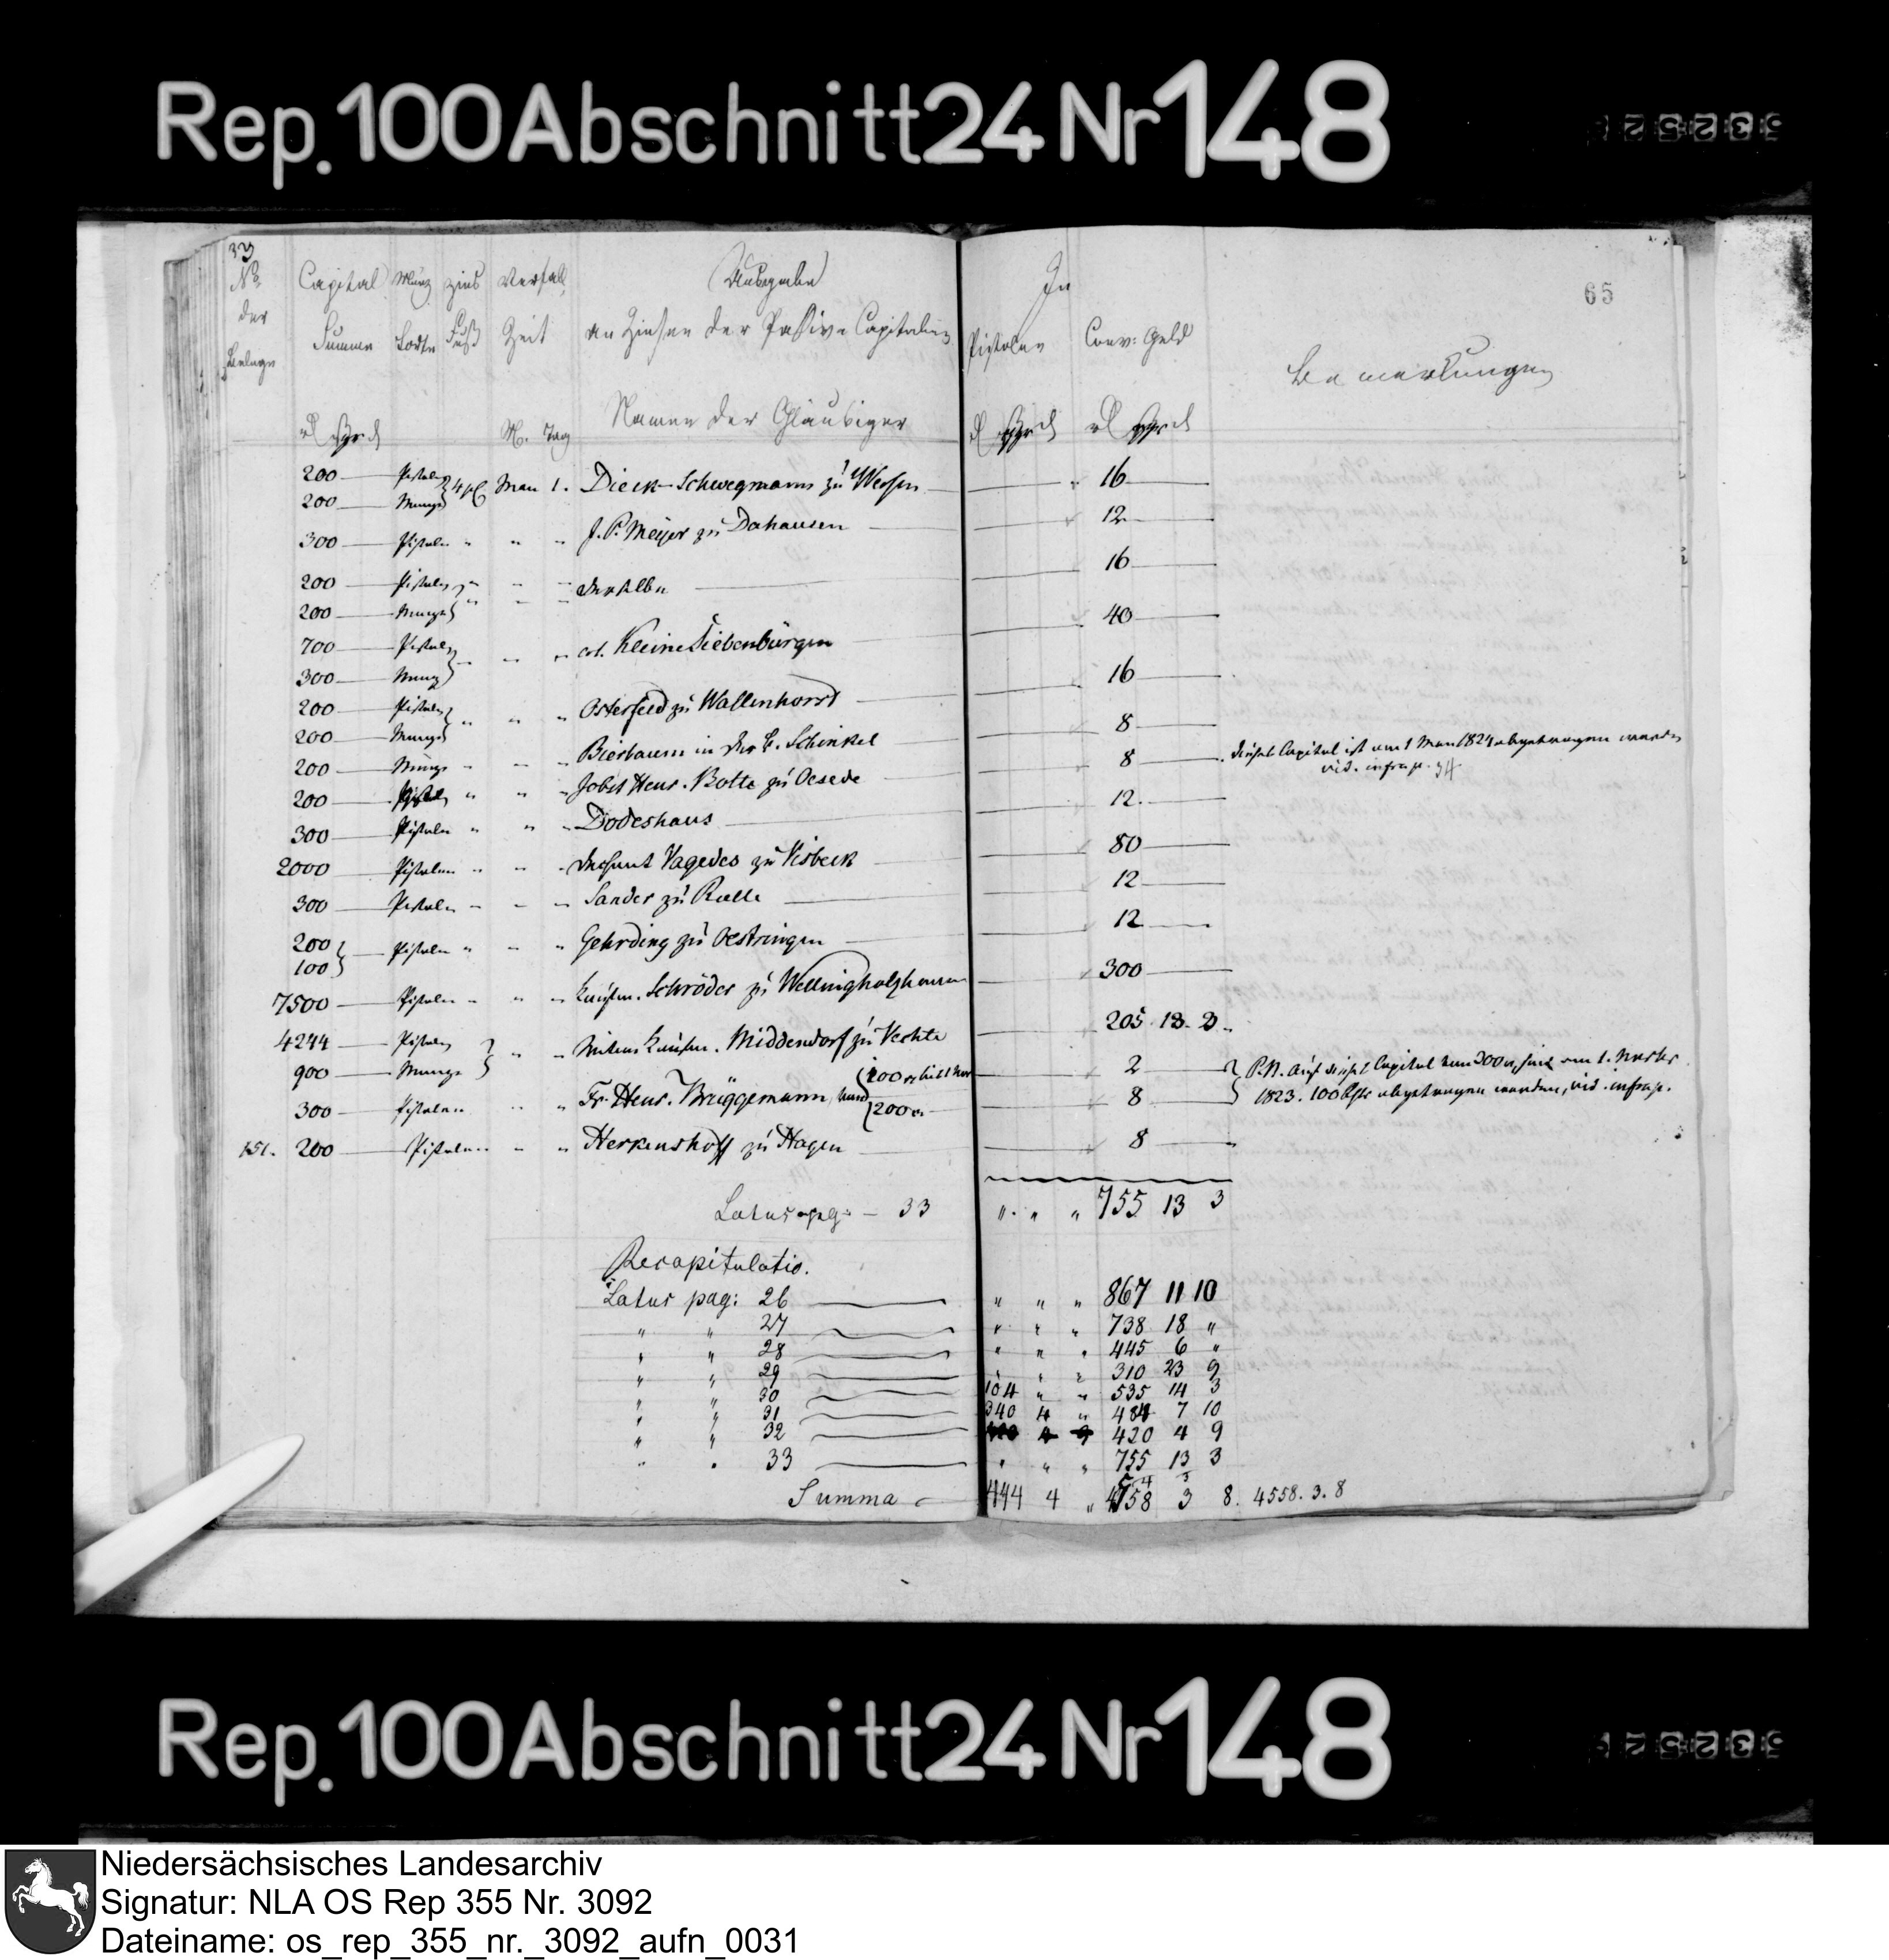 Rep. 100 Abschnitt 24 Nr 148
33
65
No. der Belege
Capital Summe
Münz Sorte
Zins Fuß
Verfall Zeit
M. Tag
Ausgabe
an Zinsen der Passiva Capitalien
Namen der Gläubiger
In
Pistolen
Conv: Geld
Bemerkungen
200 — Pistolen
200 — Münze
May 1. Dieck-Schwegmann zu — 16
300 — Pistolen " " " J. P. Meÿer zu Dahausen — 12
200 — Pistolen
200 — Münze
derselbe — 16
700 — Pistolen
300 — Münze
Col. Kleine Siebenbürgen — 40
200 — Pistolen
200 — Münze
Osterfeld zu Wallenhorst — 16
200 — Münze " " " Bierbaum in der B. Schinkel — 8
200 — Pistolen " " " Jobst Henr. Botte zu Oesede — 8
dieses Capital ist am 1 May 1824 abgetragen worden
vid. infra p. 34
300 — Pistolen " " " Dodeshaus — 12.
2000 — Pistolen " " " Vagedes zu Visbeck — 80
300 — Pistolen " " " Sander zu Rulle — 12
200
100
Pistolen " " " Gehrding zu Oestringen — 12
7500 — Pistolen " " " Kaufm. Schröder zu Wellingholzhausen — 300
4244 — Pistolen
900 — Münze
" " Witwe Kaufm. Middendorf zu Vechta — 205. 13. 3.
300 — Pistolen " " Fr. Henr. Brüggemann
100
200
2
8
P.N. Auf dieses Capital von 300 sind am 1.
1823. 100 abgetragen worden, vid. infra p.
151. 200 — Pistolen " " " Herkenshoff zu Hagen — 8
Latus pag: — 33 " " " 755 13 3
Recapitulatio.
Latus pag: 26 — " " " 867 11 10
" " 27 — " " " 738 18 "
" " 28 — " " " 445 6 "
" " 29 — " " " 310 23 9
" " 30 — 104 " " 535 14 3
" " 31 — 340 4 " 484 7 10
" " 32 — 420 4 9
" " 33 — " " " 755 13 3
Summa — 444 4 " 4558 3 8. 4558. 3. 8
Rep. 100 Abschnitt 24 Nr 148
Niedersächsisches Landesarchiv
Signatur: NLA OS Rep 355 Nr. 3092
Dateiname: os_rep_355_nr._3092_aufn_0031